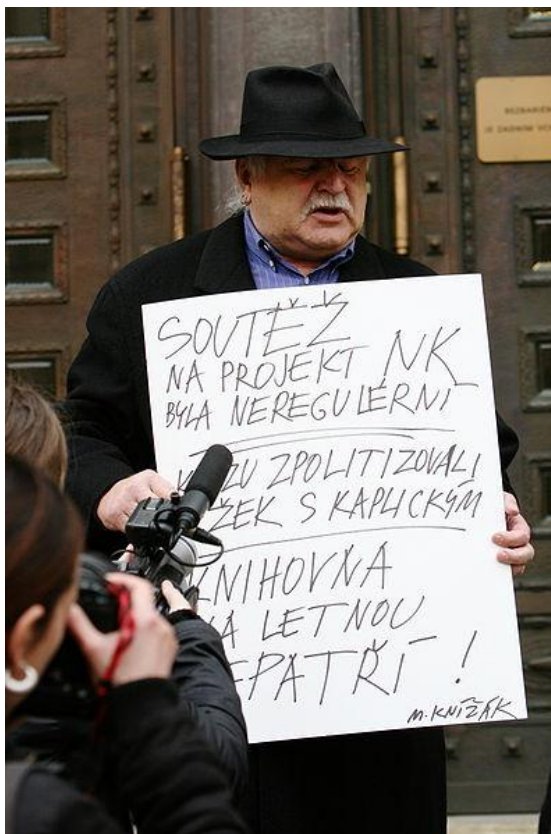 SOUTĚŽ
NA PROJEKT NK
BYLA NEREGULÉRNÍ
ZPOLITIZOVALI
S KAPLICKÝM
KNIHOVNA
NA LETNOU
NEPATŘÍ !
M. KNÍŽÁK